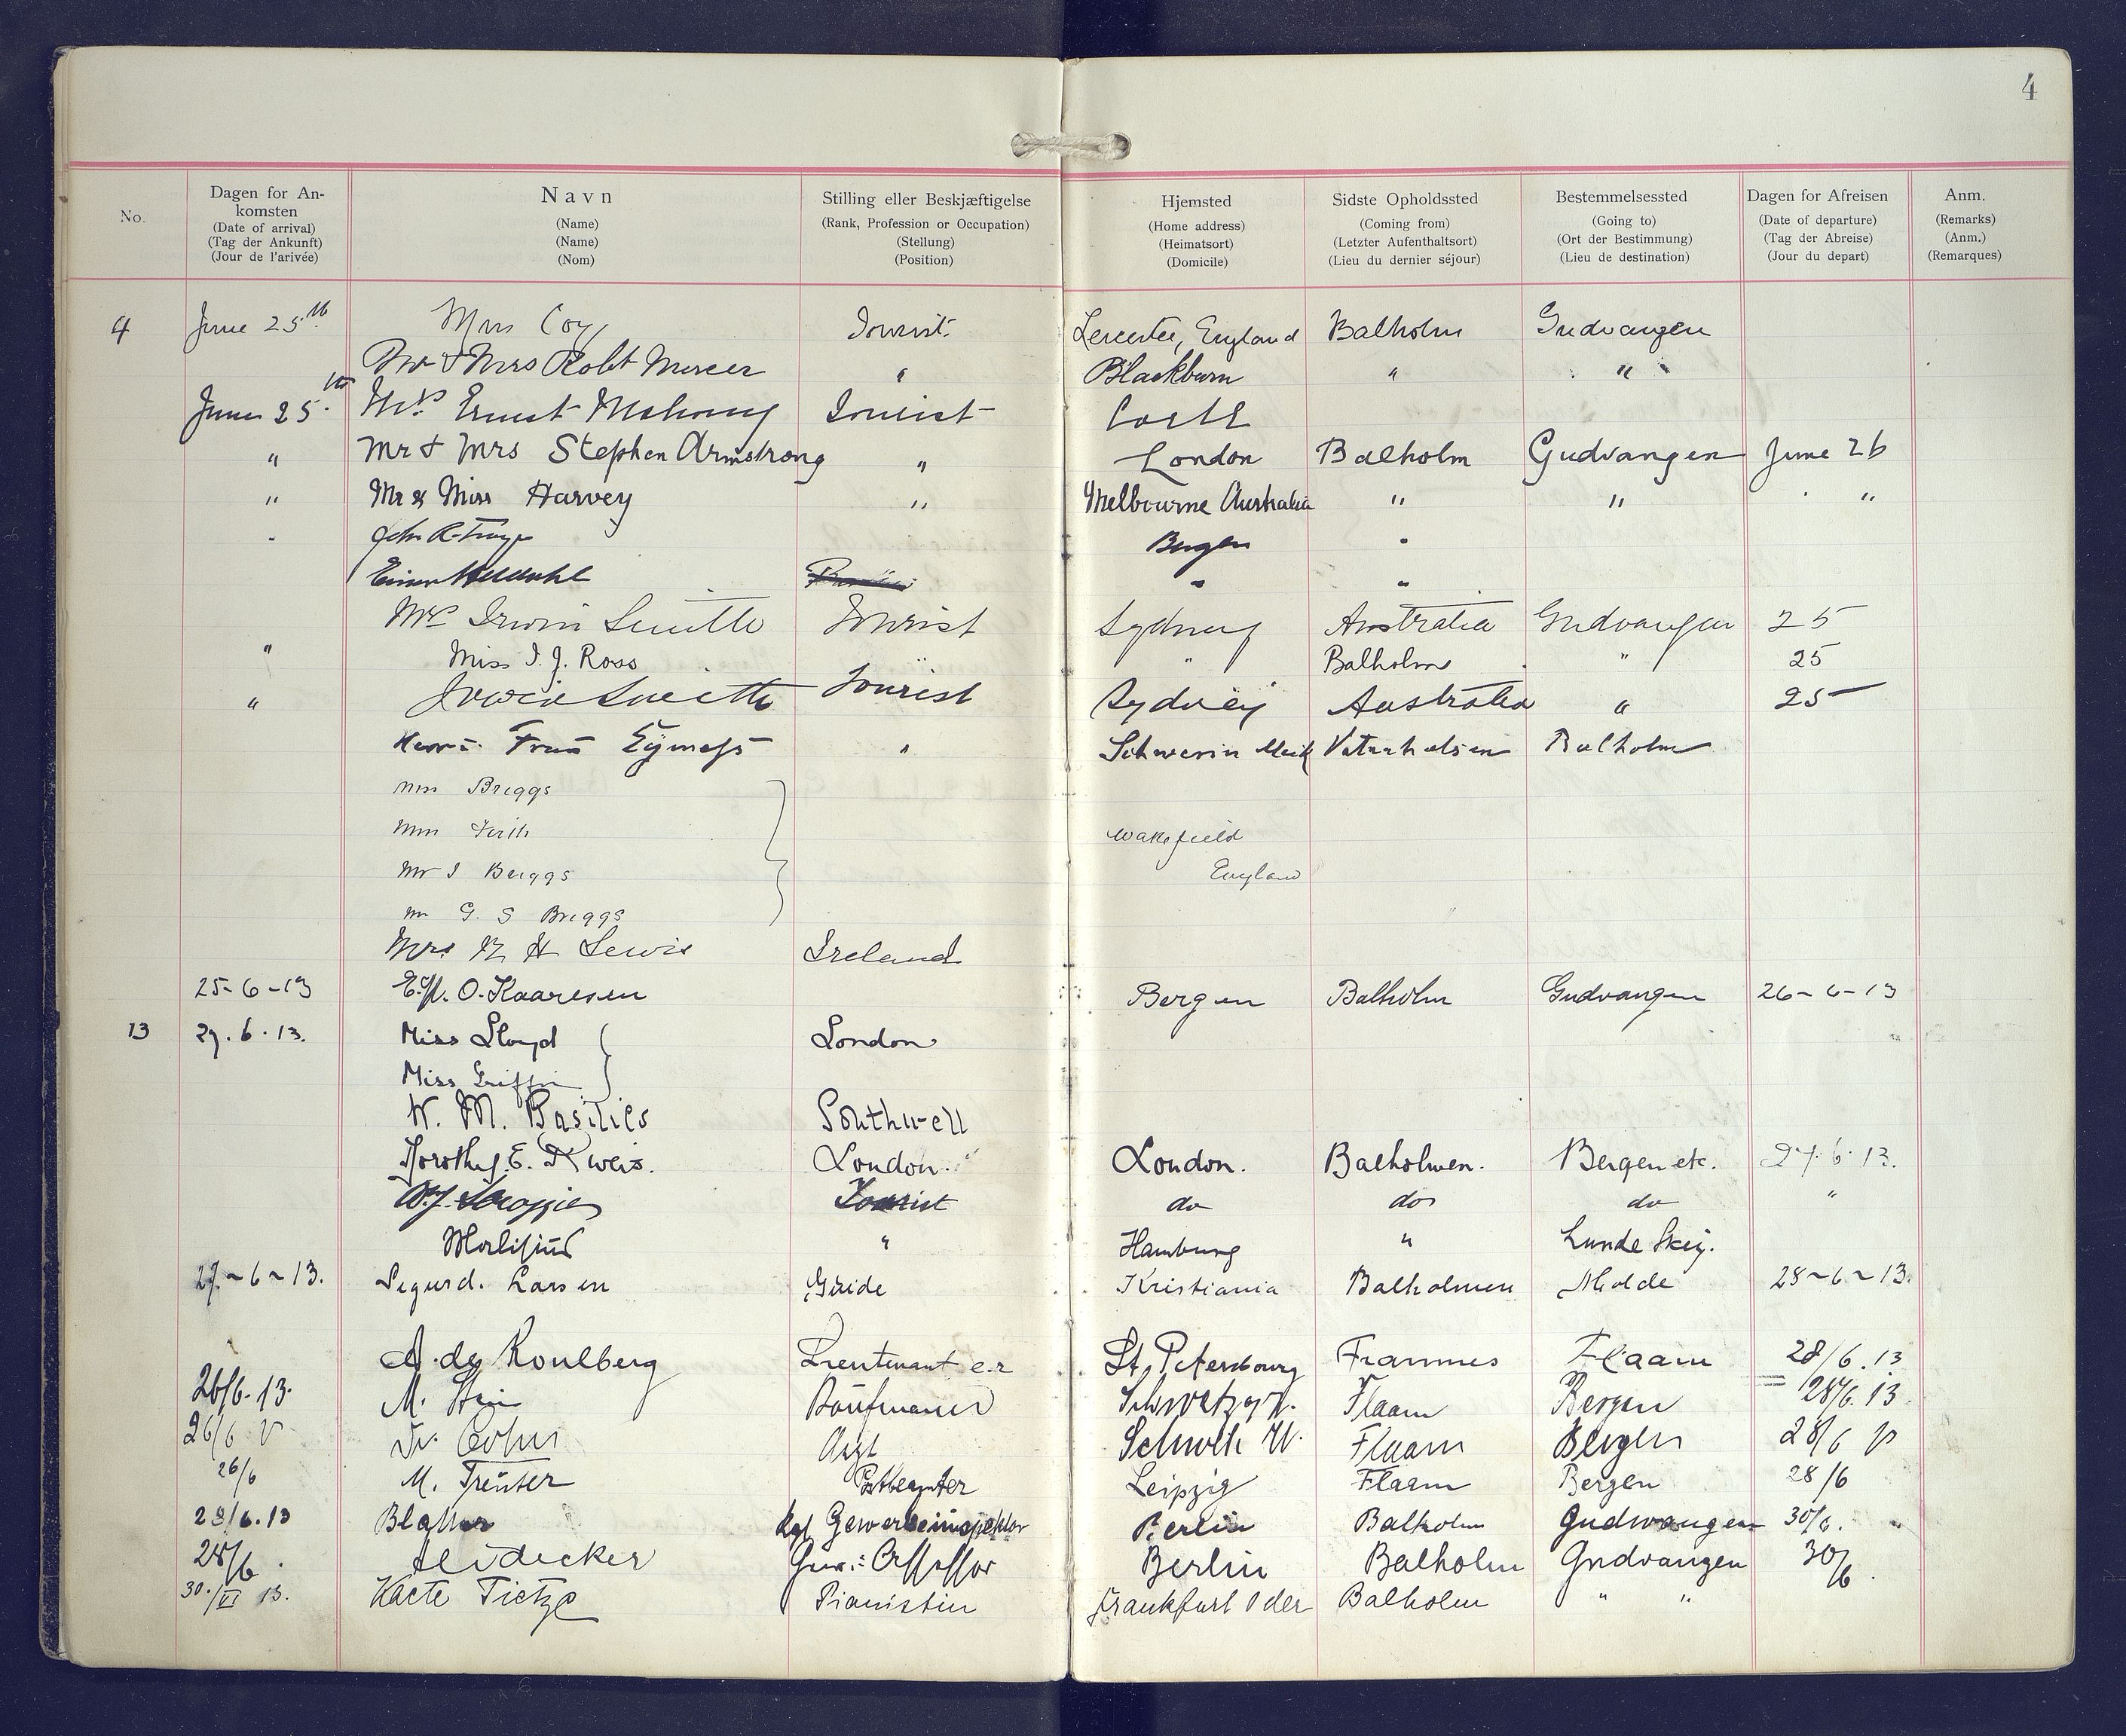 4
No.
Dagen for An-
komsten
(Date of arrival)
(Tag der Ankunft)
(Jour de l'arivée)
Navn
(Name)
(Name)
(Nom)
Stilling eller Beskjæftigelse
(Rank, Profession or Occupation)
(Stellung)
(Position)
Hjemsted
(Home address)
(Heimatsort)
(Domicile)
Sidste Opholdssted
(Coming from)
(Letzter Aufenthaltsort)
(Lieu du dernier séjour)
Bestemmelsessted
(Going to)
(Ort der Bestimmung)
(Lieu de destination)
Dagen for Afreisen
(Date of departure)
(Tag der Abreise)
(Jour du depart)
Anm.
(Remarks)
(Anm.)
(Remarques)
4 June 25th Coy Tourist Leicester, England Balholm Gudvangen
Mr & Mrs Robt Mercer " Blackburn " "
June 25th Mr Ernest Mahony Tourist Cork
" Mr & Mrs Stephen Armstrong " London Balholm Gudvangen June 26
" Mr & Miss Harvey " Melbourne Australia " " "
" John Bergen "
Einar " "
Mrs Irwin Smith Tourist Sydney Australia Gudvangen 25
" Miss I. J. Ross " " Balholm " 25
" Irwin Smith Tourist Sydney Australia " 25
Herr u. Frau " Schwerin Meck Balholm
Briggs
Firth Wakefield
Mr J Briggs England
Mr G. S Briggs
Mrs H Lewis Ireland
25-6-13 O. Kaaresen Bergen Balholm Gudvangen 26-6-13
13 27.6.13. Miss Lloyd London
Miss Griffin
W. M. Southwell
Dorothy E. London. London. Balholmen. Bergen etc. 27.6.13.
Tourist do do do "
" Hamburg " Lunde Skei.
27-6-13. Sigurd. Larsen Guide Kristiania Balholmen Molde 28-6-13.
A. de Koulberg Lieutenant e.r St. Petersbourg Flaam 28/6.13
26/6.13. M. Stein Kaufmann Flaam Bergen 28/6.13
26/6 Dr. Cohn Arzt Flaam Bergen 28/6
26/6 M. Treuter Postbeamter Leipzig Flaam Bergen 28/6
28/6.13 Kgl Gewerbeinspektor Berlin Balholm Gudwangen 30/6.
28/6. Heidecker Berlin Balholm Gudvangen 30/6.
30./VI 13. Käte Tietze Pianistin Frankfurt Oder Balholm " "